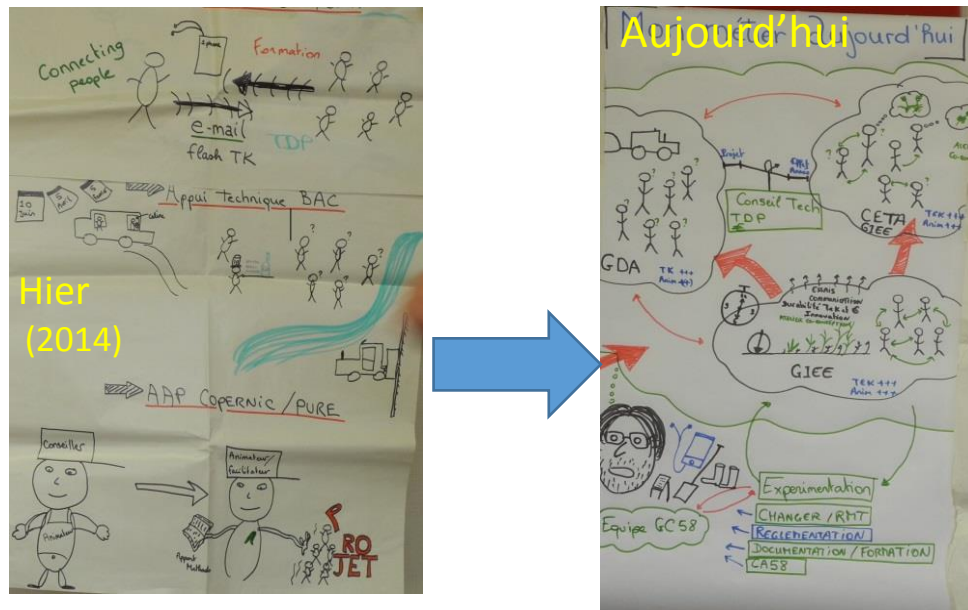 1 phone
Connecting
people
Formation
e-mail
flash TK
TDP
10
Juin
5
Avril
Appui Technique BAC
Hier
(2014)
AAP COPERNIC/PURE
Conseiller
Animateur
Animateur/
facilitateur
Appui
Méthodo
A
PROJET
Aujourd'hui
Mon métier Aujourd'hui
Projet
Conseil Tech
TDP
GDA
TK +++
CETA
GIEE
TEK +++
Anim +++
ESSAIS
COMMUNICATION
Durabilité
Innovation
GIEE
TEK +++
Anim +++
Equipe GC 58
Experimentation
CHANGER / RMT
REGLEMENTATION
DOCUMENTATION / FORMATION
CA58